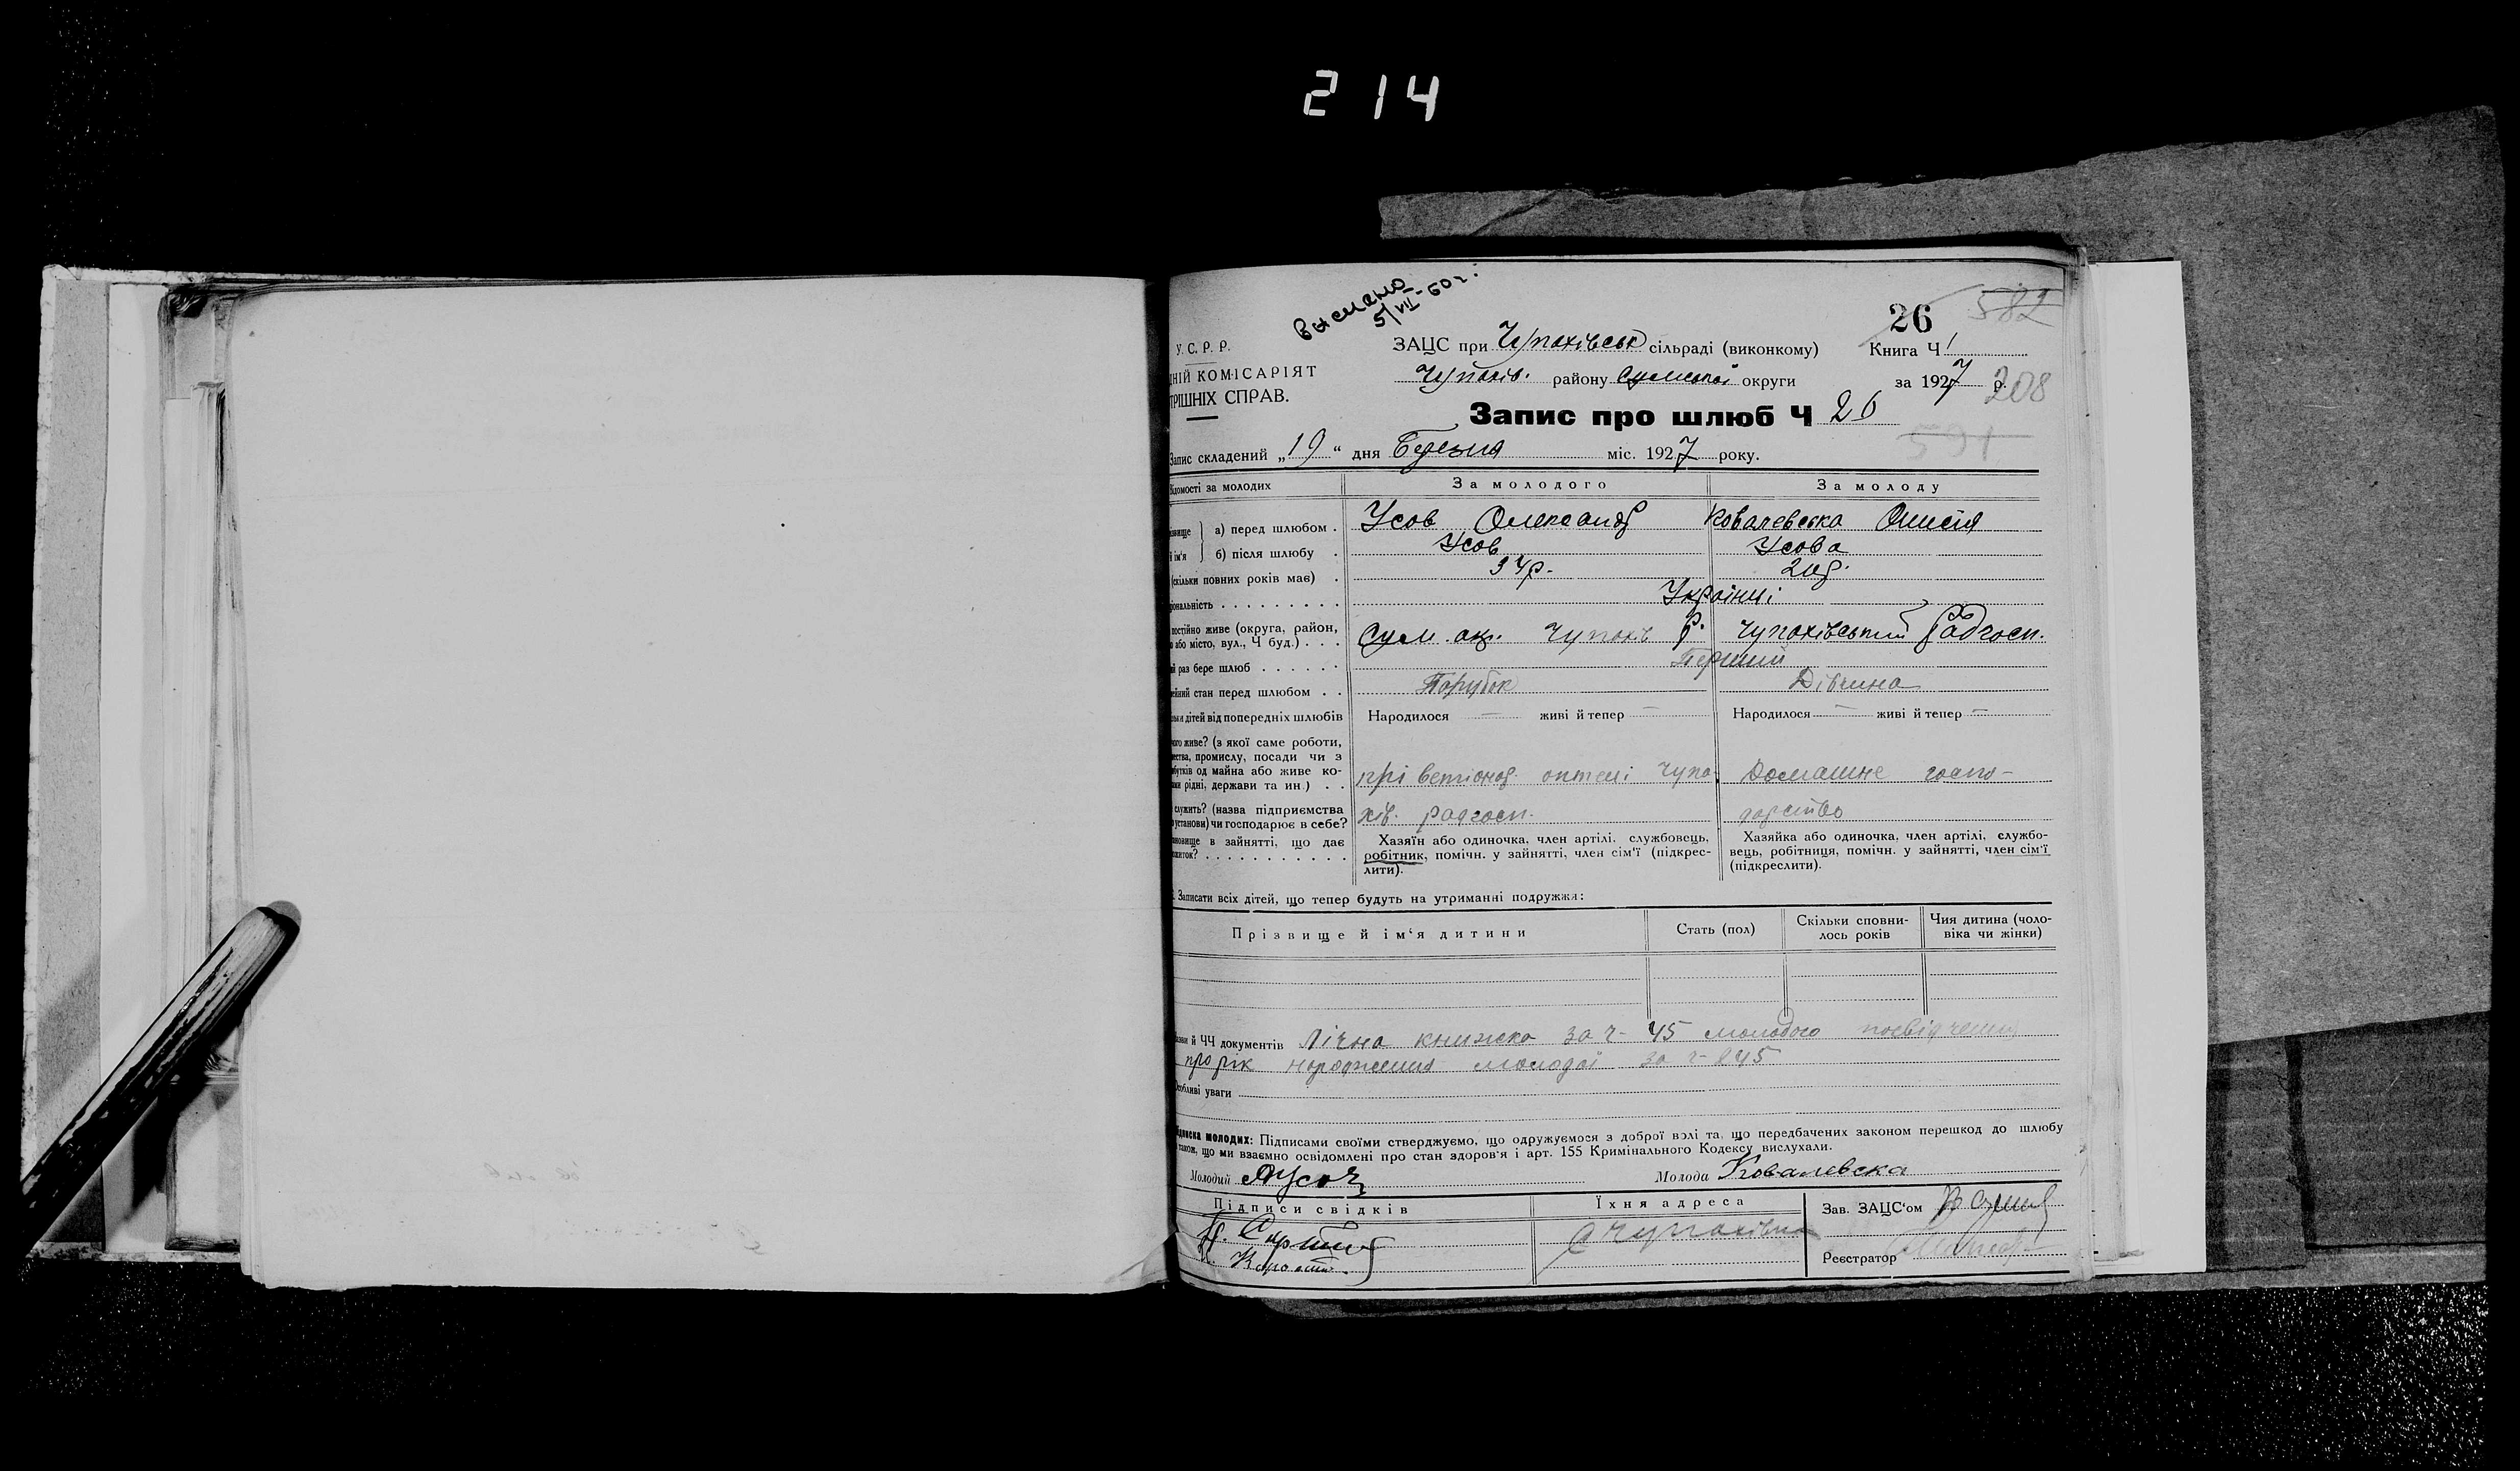 214
вислано
5/VII-60 г.
26
582
У. С. Р. Р.
ЗАЦС при Чупахівськ сільраді (виконкому)
Книга Ч 1
ДНІЙ КОМІСАРІЯТ
Чупахів. району Сумської округи
за 1927 р.
208
ТРІШНІХ СПРАВ.
Запис про шлюб Ч 26
591
Запис складений „19“ дня Березня міс. 1927 року.
відомості за молодих
За молодого
За молоду
а) перед шлюбом .
Усов Олександ
Ковалевська
й ім'я
б) після шлюбу .
Усов
Усова
(скільки повних років має) .
34р.
20р.
іональність . . . . . . . . .
Українці
постійно живе (округа, район,
або місто, вул., Ч буд.) . . .
Сум. окр. Чупахів р.
Чупахівський Радгосп.
ий раз бере шлюб . . . . . .
Перший
ейний стан перед шлюбом . .
Парубок
Дівчина
дітей від попередніх шлюбів
Народилося — живі й тепер —
Народилося — живі й тепер —
чого живе? (з якої саме роботи,
промислу, посади чи з
бутків од майна або живе ко-
рідні, держави та ин.) . .
прі чупа
Домашнє госпо-
служить? (назва підприємства
установи) чи господарює в себе?
хів. радгосп.
дарство
в зайнятті, що дає
. . . . . . . . . . .
Хазяїн або одиночка, член артілі, службовець,
робітник, помічн. у зайнятті, член сім'ї (підкрес-
лити).
Хазяйка або одиночка, член артілі, службо-
вець, робітниця, помічн. у зайнятті, член сім'ї
(підкреслити).
Записати всіх дітей, що тепер будуть на утриманні подружжя:
Прізвище й ім'я дитини
Стать (пол)
Скільки сповни-
лось років
Чия дитина (чоло-
віка чи жінки)
й ЧЧ документів Лічна книжка за ч- 45 молодого посвідчення
про рік народження молодої за ч- 845
Особливі уваги
молодих: Підписами своїми стверджуємо, що одружуємося з доброї волі та, що передбачених законом перешкод до шлюбу
що ми взаємно освідомлені про стан здоров'я і арт. 155 Кримінального Кодексу вислухали.
Молодий АУсов
Молода Ковалевска
Підписи свідків
Їхня адреса
Зав. ЗАЦС'ом
С Чупахівка
Реєстратор